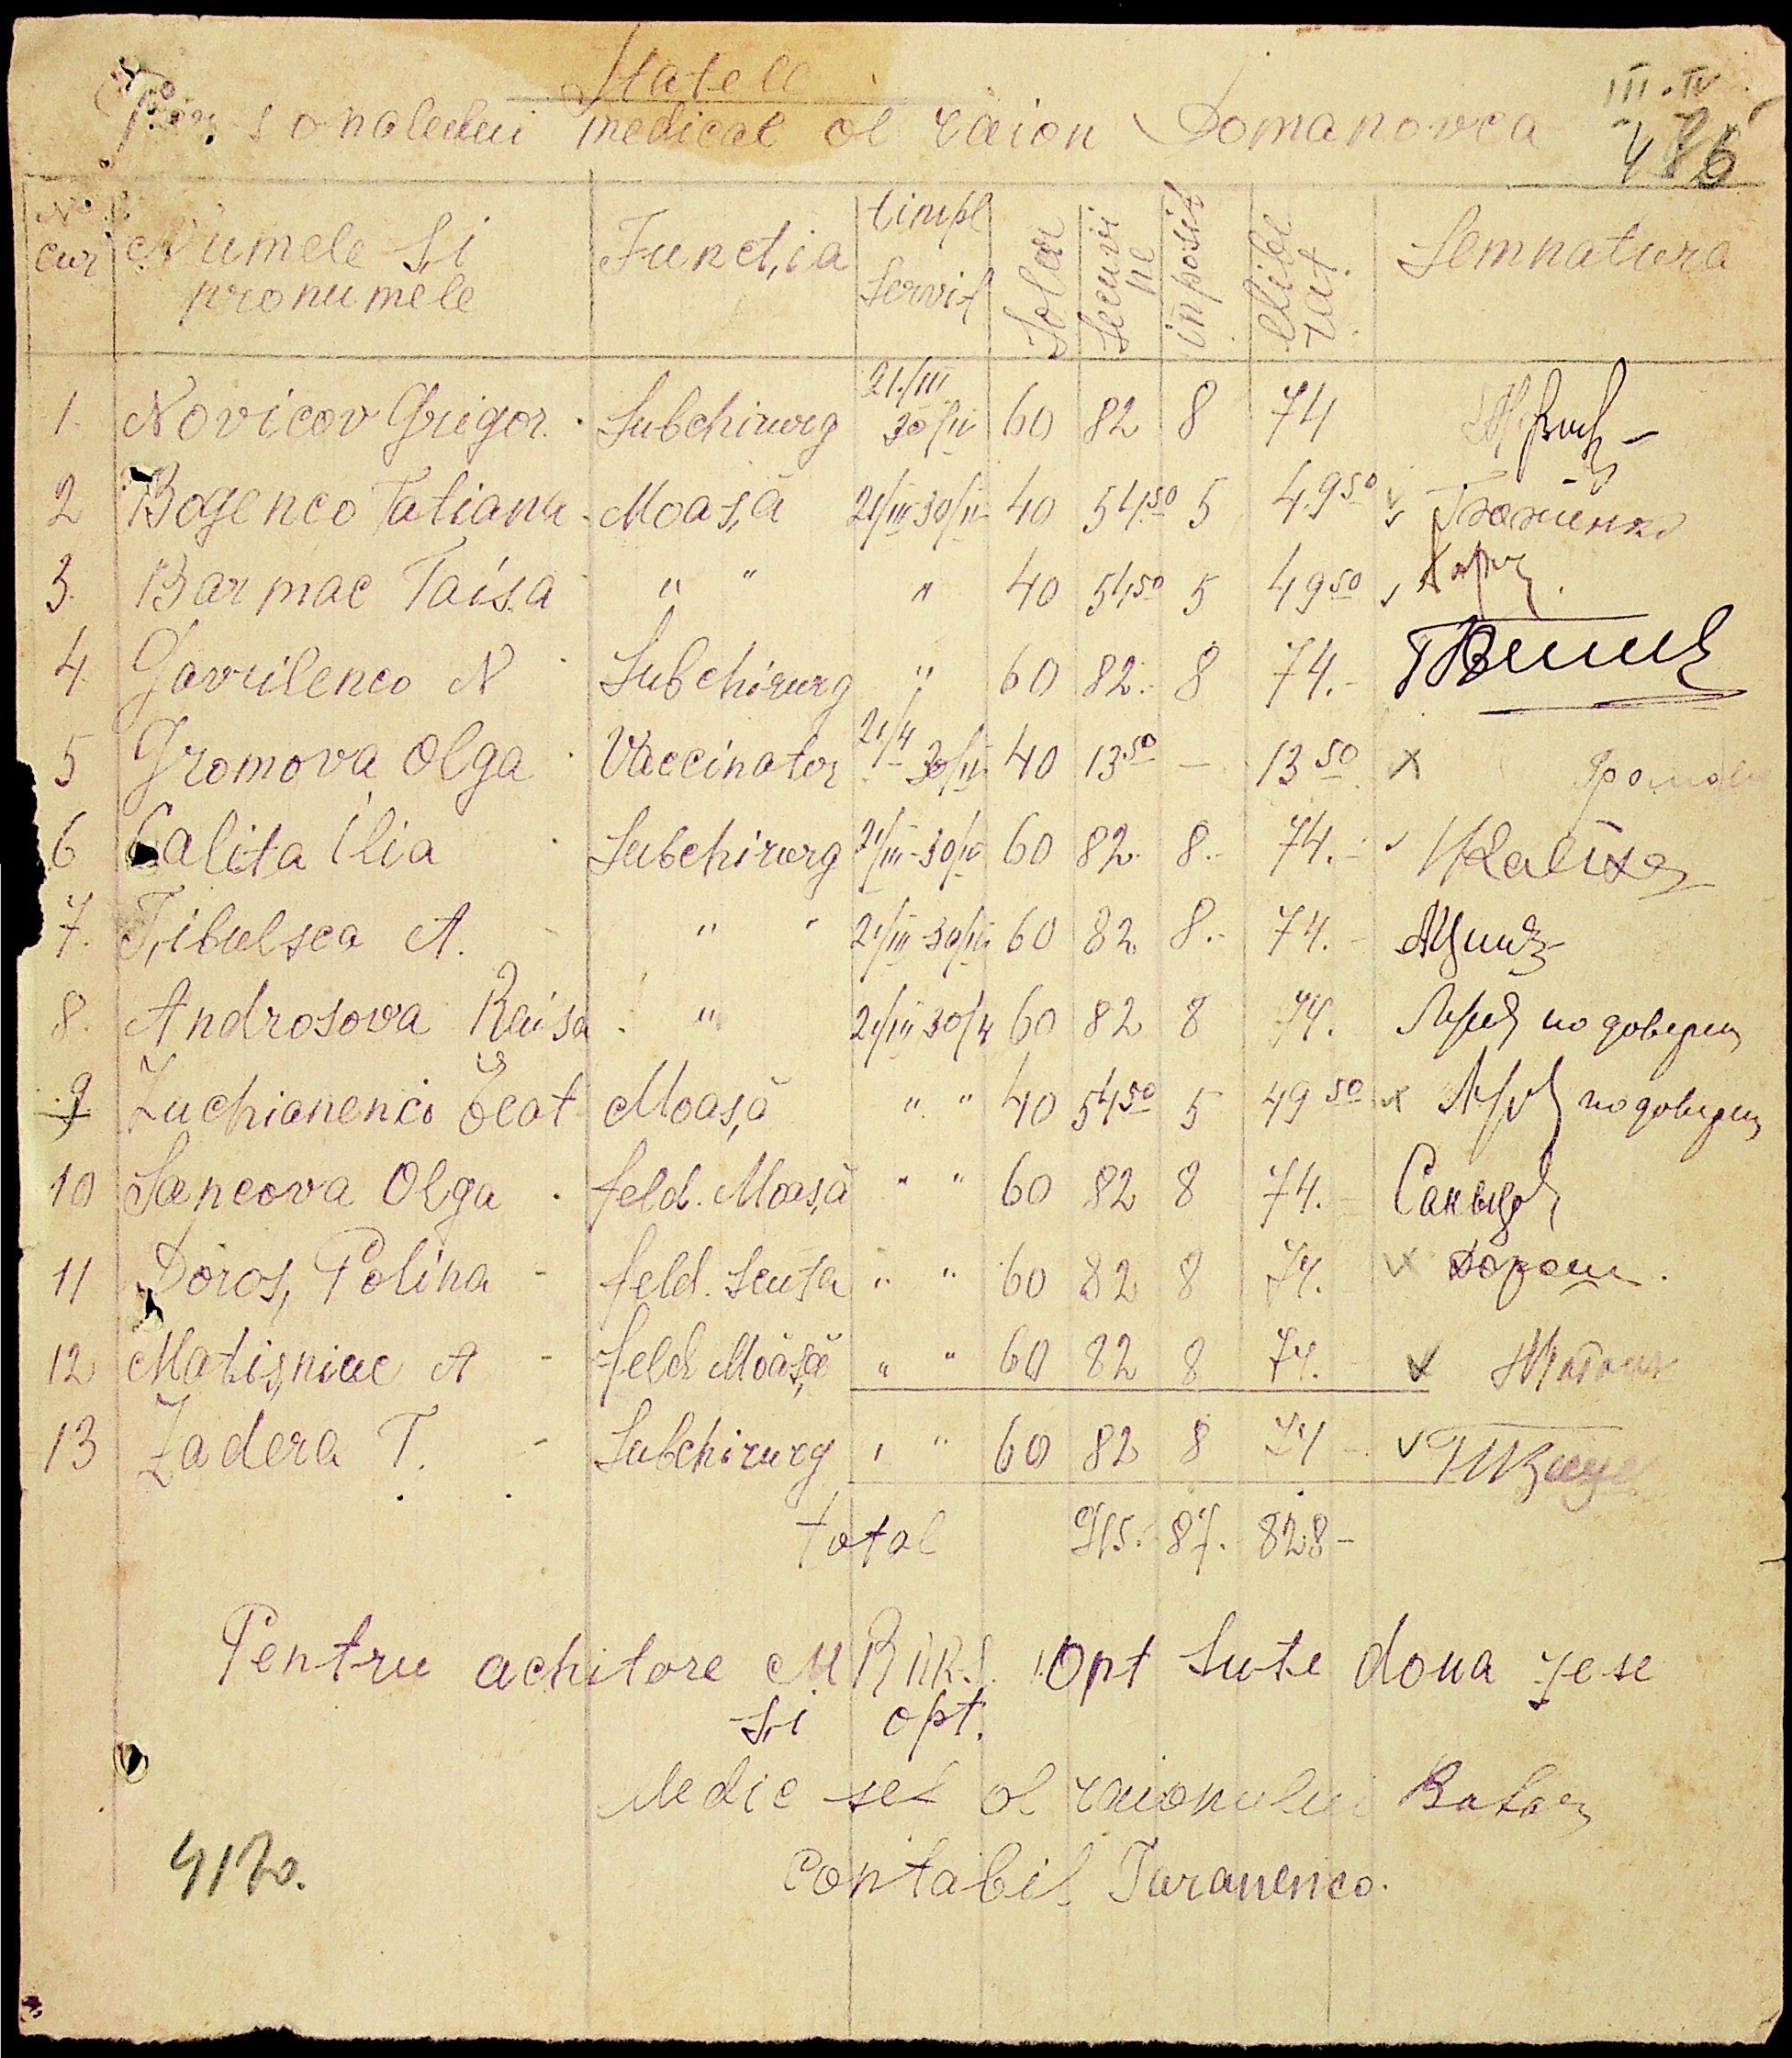 Statele
Personalului medical al raion Domanovca
III-IV
486
No cur Numele și pronumele Funct,ia timpl servit Solar Se cuvi ne inposit elibe rat. Semnatura
1. Novicov Grigor. Subchirurg 21/III 30/IV 60 82 8 74
2 Bogenco Tatiana Moas,ă 21/III-30/IV 40 54,50 5 49 50 Боженко
3. Barmac Taisa " " " 40 54,50 5 49 50
4. Gavrilenco N Subchirurg " 60 82.- 8 74.-
5 Gromova Olga Vaccinator 21/4 30/IV 40 13 50 - 13 50 x Громова
6 Calita Ilia Subchirurg 21/III-30/IV 60 82. 8.- 74.-
7. T,ibulsca A. " " 21/III-30/IV 60 82 8.- 74.-
8. Androsova Raisa " 21/III 30/4 60 82 8 74. по доверен
9 Luchianenco Ecat Moas,ă " " 40 54 50 5 49 50 x по доверен
10 Sancova Olga feld. Moas,ă " " 60 82 8 74. Саньков
11 Doros, Polina feld. " " 60 82 8 74. Дорош.
12 Matis,niac A feld Moas,ă " " 60 82 8 74.
13 Zadera T. Subchirurg " " 60 82 8 74
total 915. 87. 828-
Pentru achitare M RKKS. Opt Sute doua zese
s,i opt.
Medic sef al raionului
Contabil Taranenco.